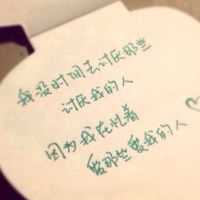 我没时间去讨厌那些
讨厌我的人
因为我在忙着
爱那些爱我的人